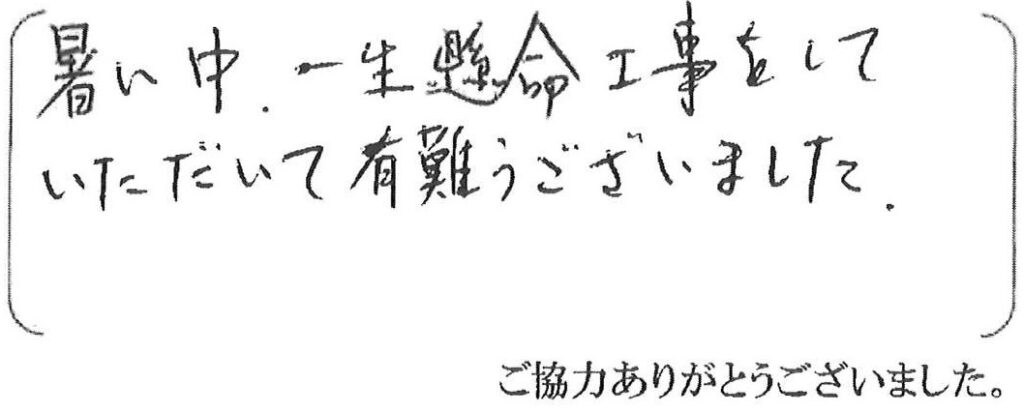 暑い中、一生懸命工事をして
いただいて有難うございました。
ご協力ありがとうございました。